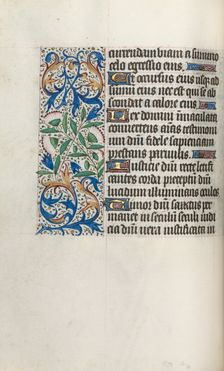 currendam viam a summo
celo egressio eius
Et occursus eius usq; ad
summum eius nec est qui se ab
scondat a calore eius
Lex domini immaculata
convertens aĩas testimoni
um dñi fidele sapienciam
prestans parvulis
Iusticie dñi recte letifi
cantes corda preceptũ dñi
lucidum illuminans oculos
Timor dñi sanctus per
manet in seculũ seculi iudi
cia dñi vera iustificata in